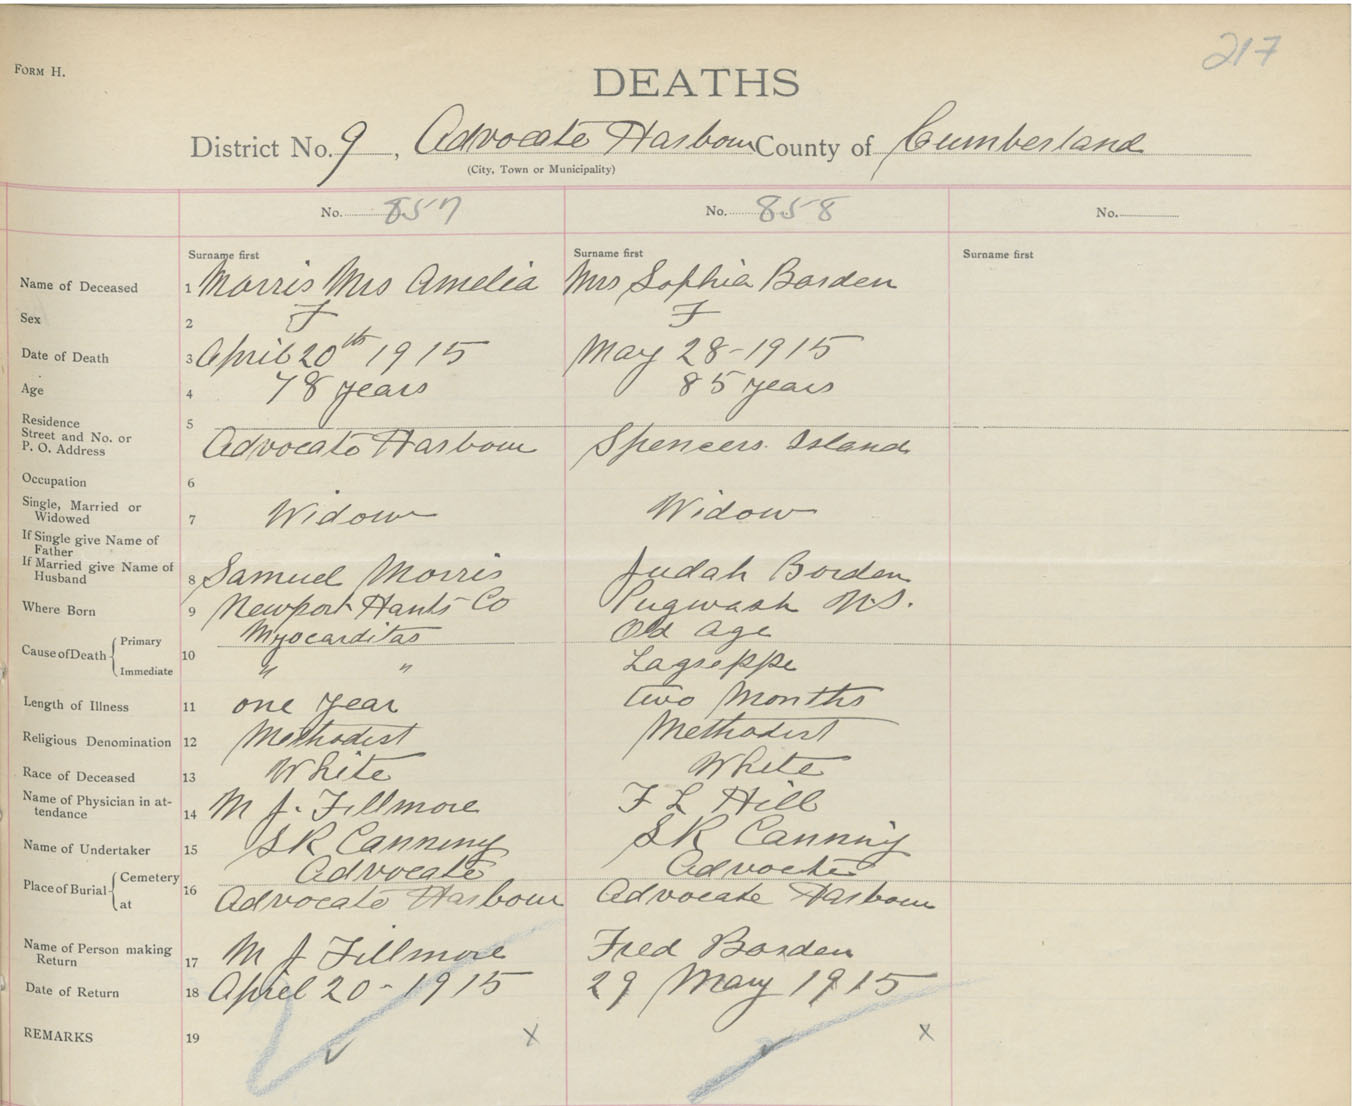 217
FORM H.
DEATHS
District No. 9, Advocate Harbour County of Cumberland
(City, Town or Municipality)
No. 857 No. 858 No.
Surname first Surname first Surname first
Name of Deceased 1 Morris Mrs Amelia Mrs Sophia Borden
Sex 2 F F
Date of Death 3 April 20th 1915 May 28-1915
Age 4 78 years 85 years
Residence
Street and No. or
P. O. Address 5 Advocate Harbour Spencers Island
Occupation 6
Single, Married or
Widowed 7 Widow Widow
If Single give Name of
Father
If Married give Name of
Husband 8 Samuel Morris Judah Borden
Where Born 9 Newport Hants Co Pugwash N.S.
Cause of Death 10 Primary Myocarditas Old Age
Immediate " " Lagreppe
Length of Illness 11 one year two Months
Religious Denomination 12 Methodist Methodist
Race of Deceased 13 White White
Name of Physician in at-
tendance 14 M J. Fillmore F L Hill
Name of Undertaker 15 S R Canning S R Canning
Place of Burial 16 Cemetery Advocate Advocate
at Advocate Harbour Advocate Harbour
Name of Person making
Return 17 M J Fillmore Fred Borden
Date of Return 18 April 20-1915 29 May 1915
REMARKS 19 x x